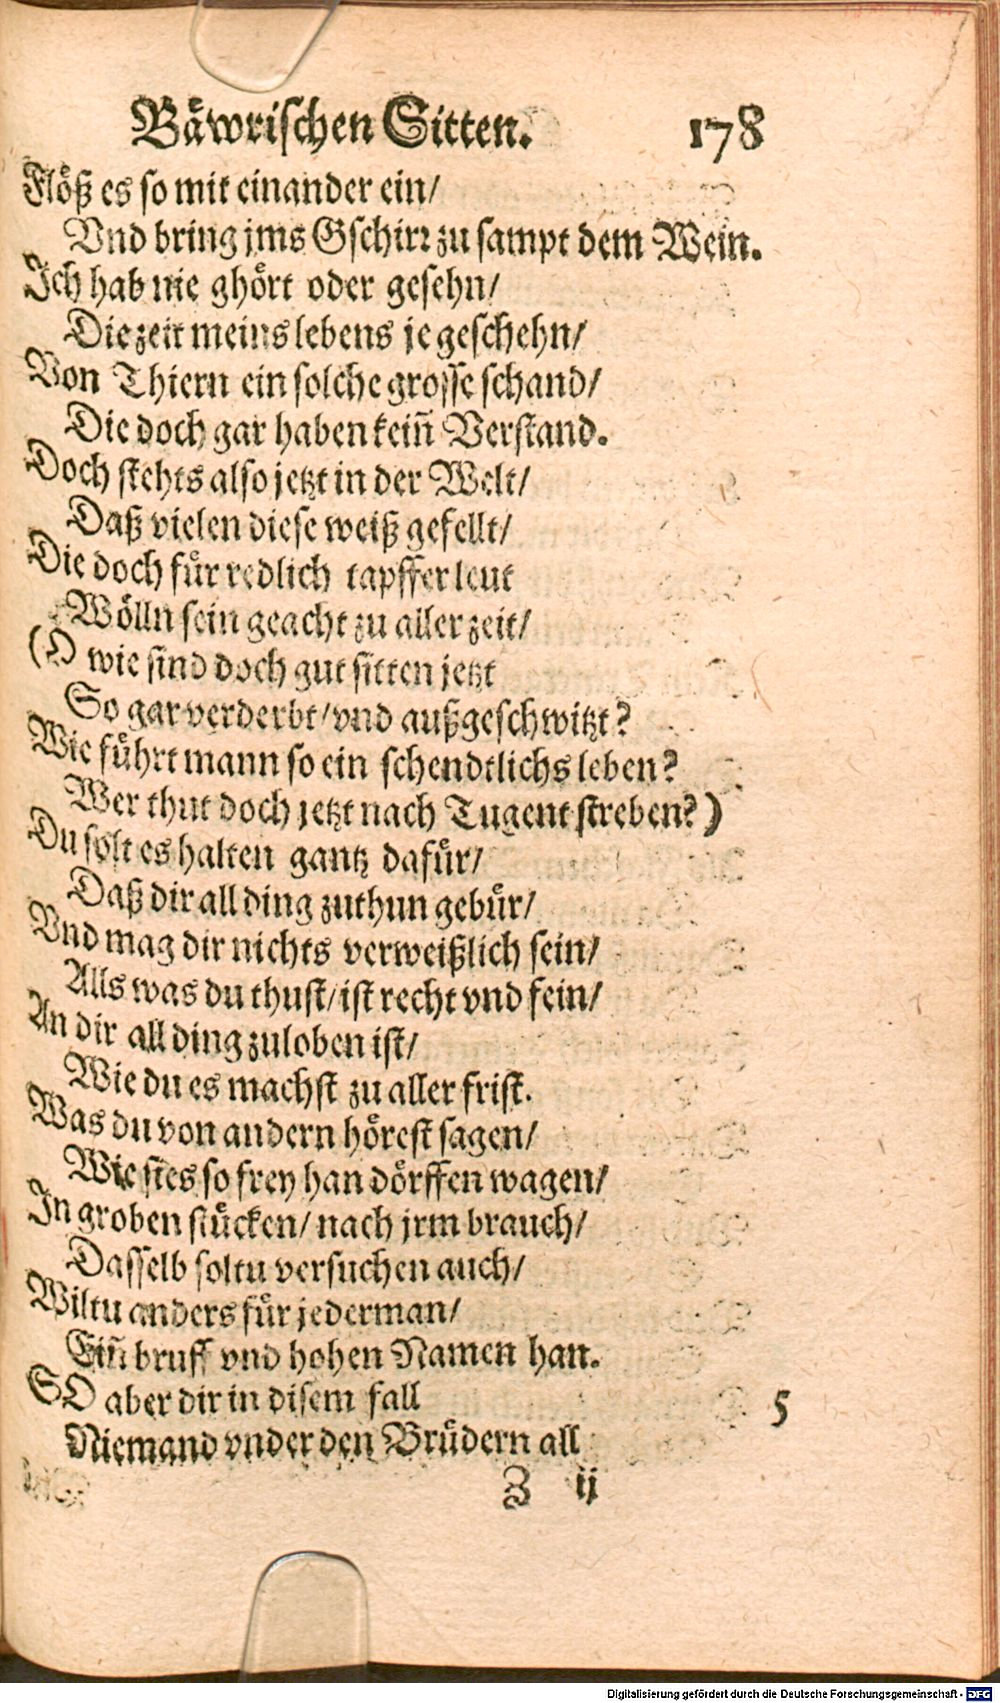 Bäwrischen Sitten. 178
Flöß es so mit einander ein/
Vnd bring jms Gschirr zu sampt dem Wein.
Ich hab nie ghört oder gesehn/
Die zeit meins lebens je geschehn/
Von Thiern ein solche grosse schand/
Die doch gar haben keiñ Verstand.
Doch stehts also jetzt in der Welt/
Daß vielen diese weiß gefellt/
Die doch für redlich tapffer leut
Wölln sein geacht zu aller zeit/
(O wie sind doch gut sitten jetzt
So gar verderbt/vnd außgeschwitzt?
Wie führt mann so ein schendtlichs leben?
Wer thut doch jetzt nach Tugent streben?)
Du solt es halten gantz dafür/
Daß dir all ding zuthun gebür/
Vnd mag dir nichts verweißlich sein/
Alls was du thust/ist recht vnd fein/
An dir all ding zuloben ist/
Wie du es machst zu aller frist.
Was du von andern hörest sagen/
Wie sies so frey han dörffen wagen/
In groben stücken/nach jrm brauch/
Dasselb soltu versuchen auch/
Wiltu anders für jederman/
Eiñ bruff vnd hohen Namen han.
SO aber dir in disem fall 5
Niemand vnder den Brüdern all
Z ij
Digitalisierung gefördert durch die Deutsche Forschungsgemeinschaft - DFG